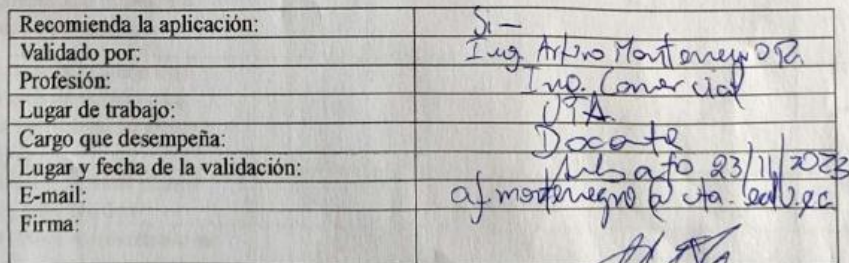 Recomienda la aplicación: Si —
Validado por: Ing Arturo Montenegro
Profesión: Ing. Comercial
Lugar de trabajo: UTA.
Cargo que desempeña: Docente
Lugar y fecha de la validación: Ambato 23/11/2023
E-mail: af.montenegro@uta.edu.ec
Firma: